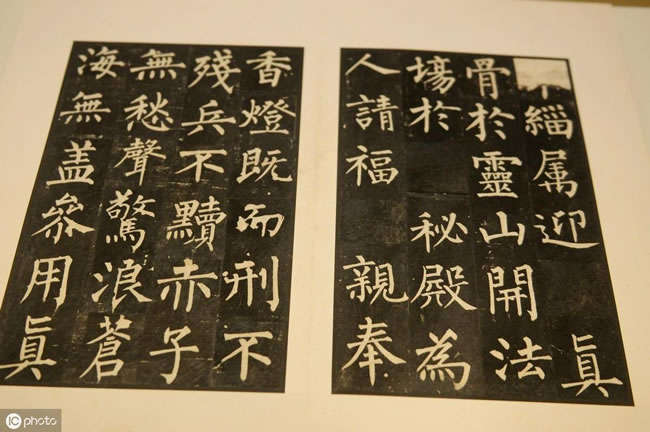 緇属迎 眞
骨於靈山開法
場於 秘殿為
人請福 親奉
香燈既而刑不
殘兵不黷赤子
無愁聲驚浪蒼
海無盖叅用眞
IC photo